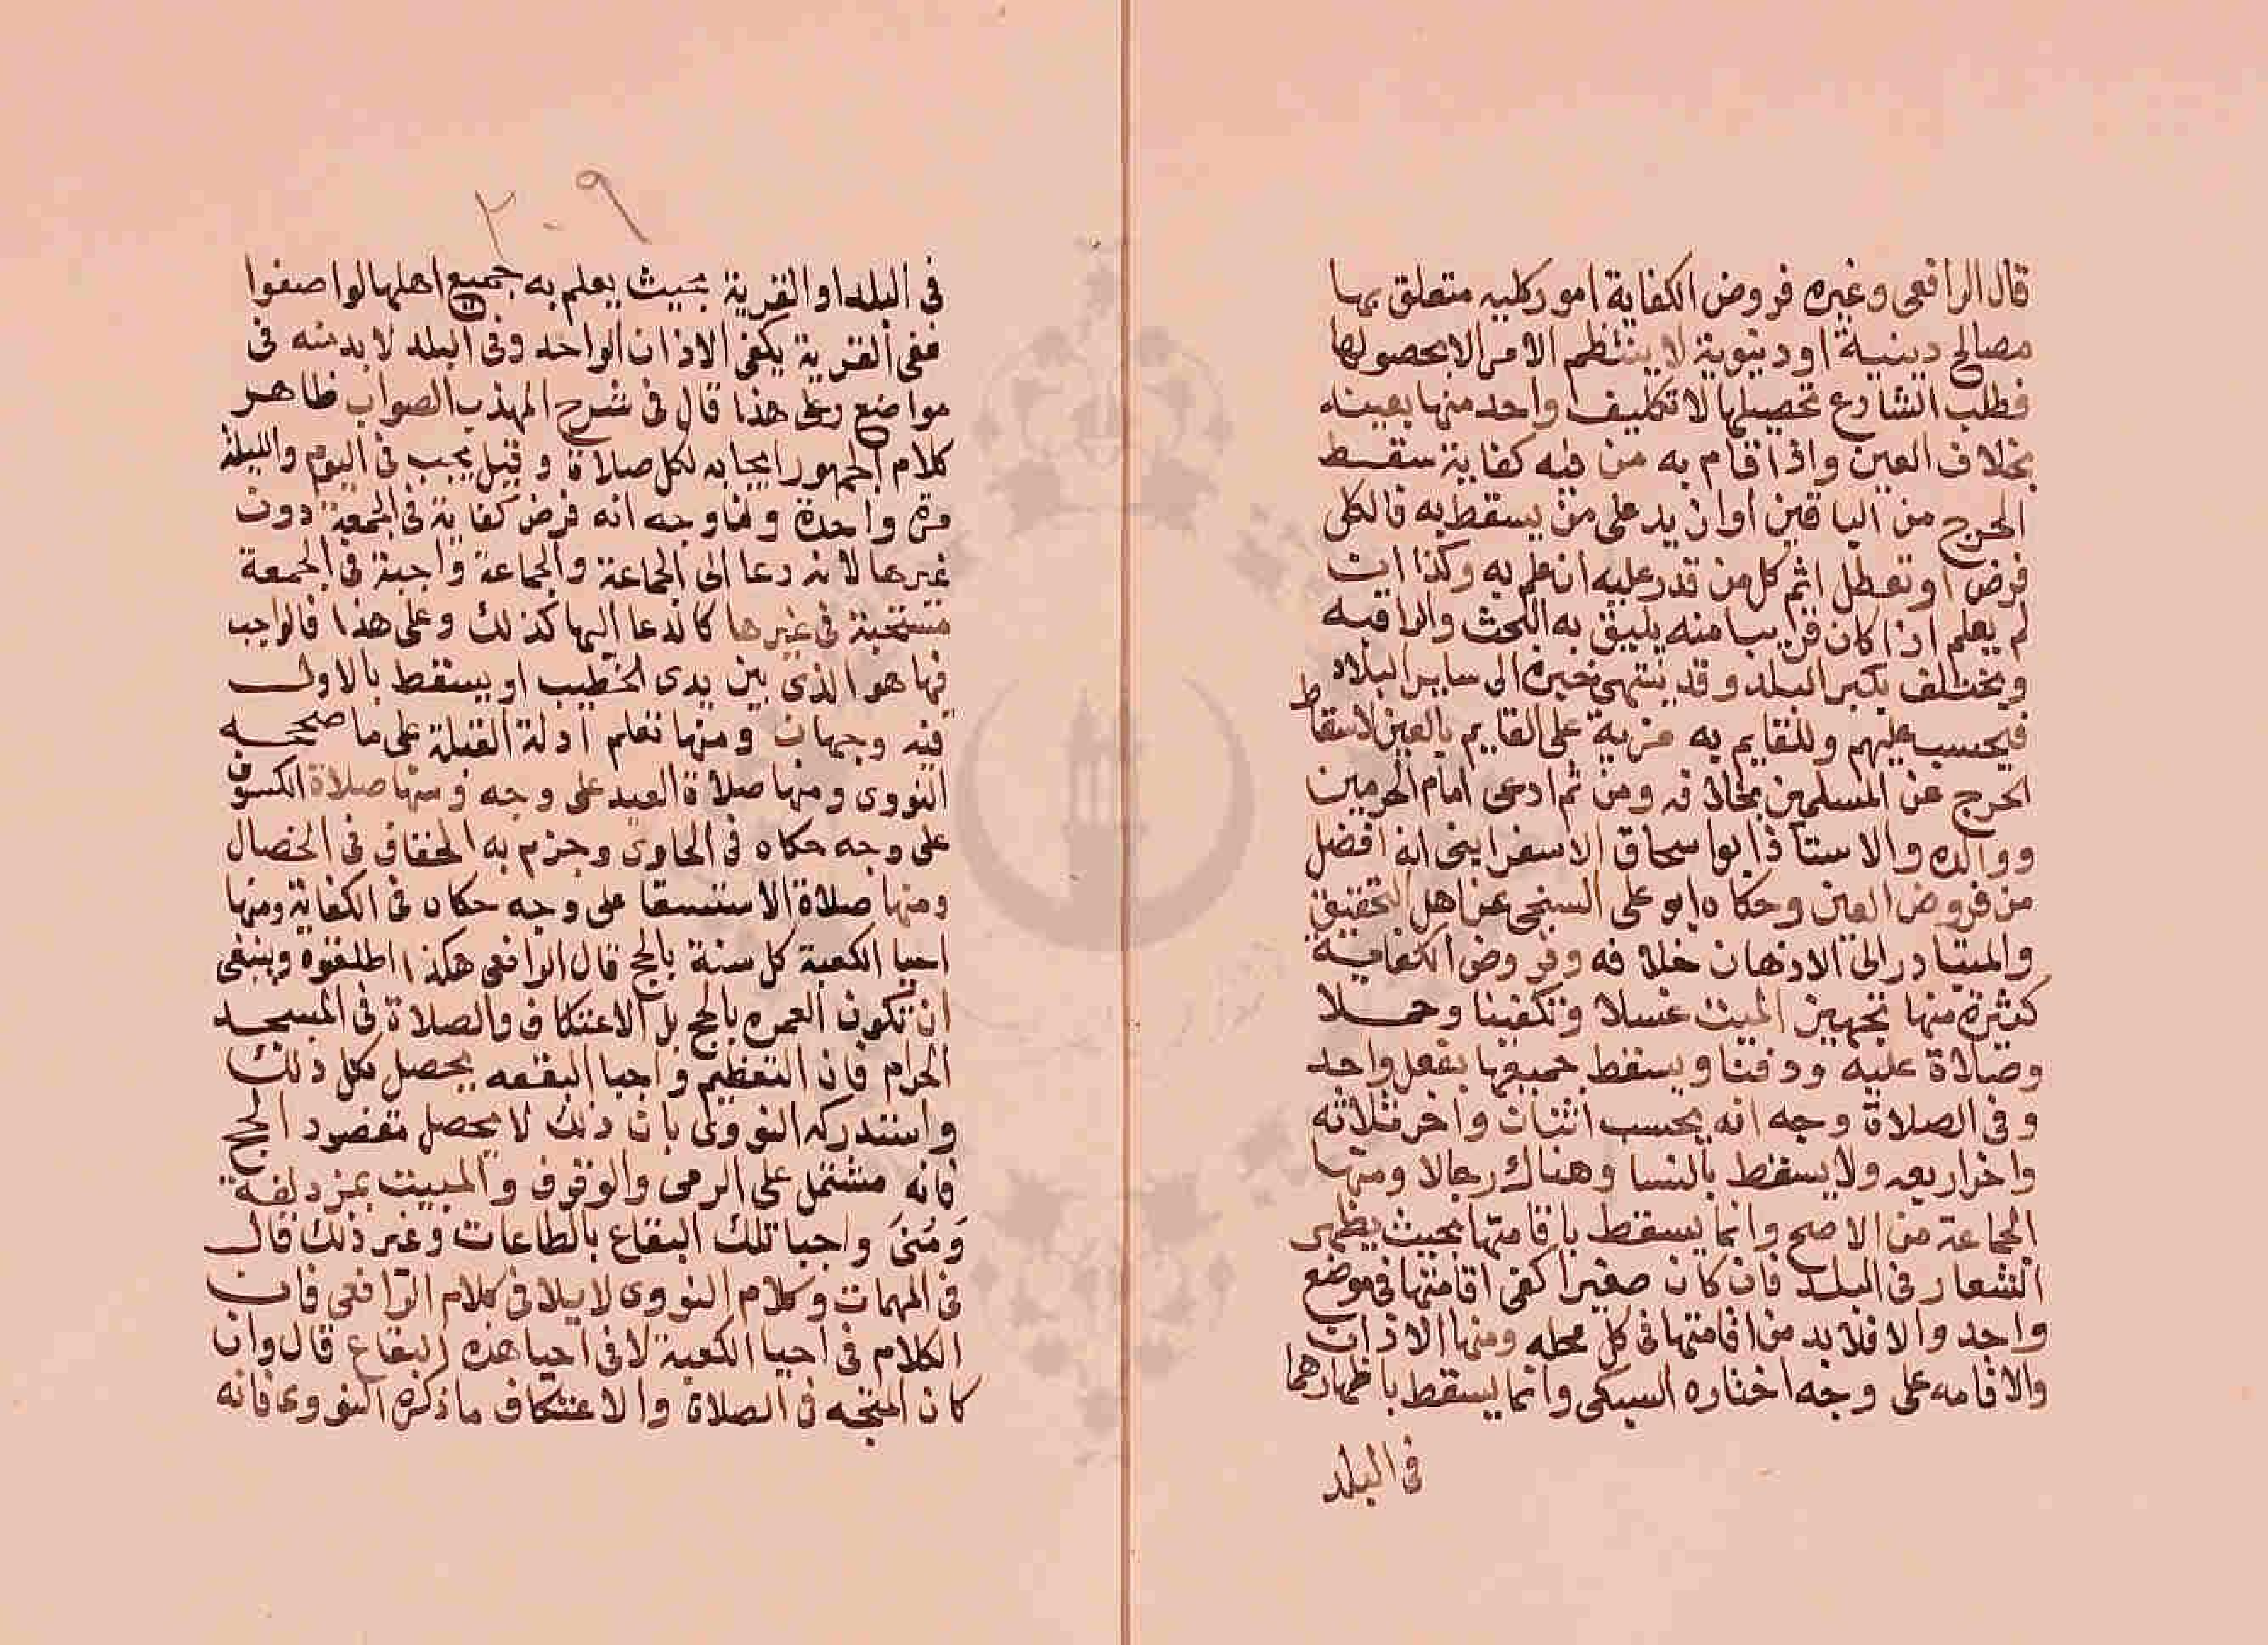 قال الرافعى وغيره فروض الكفاية امور كليه متعلق بها
مصالح دينية او دنيوية لا ينتظم الامر الا بحصولها
فطلب الشارع تحصيلها لا تكليف واحد منها بعينه
بخلاف العين واذا قام به من فيه كفاية سقط
الحرج من الباقين اوان يد على من يسقط به فالكل
فرض او تعطل اثم كل من قدر عليه ان علم به وكذا ان
لم يعلم اذا كان قريبا منه يليق به البحث والراقبه
ويختلف بكبر البلد وقد ينتهى خبره الى ساير البلاد
فيحسب عليهم وللقايم به مزية على القايم بالعين لاسقاط
الحرج عن المسلمين بخلافه ومن ثم ادعى امام الحرمين
ووالده والاستاذ ابو اسحاق الاسفراينى انه افضل
من فروض العين وحكاه ابو على السنجى عن اهل التحقيق
والمتبادر الى الاذهان خلافه وفروض الكفاية
كثيرة منها تجهيز الميت غسلا وتكفينا وحملا
وصلاة عليه ودفنا ويسقط جميعها بفعل واحد
وفى الصلاة وجه انه يحسب اثنان واخر ثلاثه
واخر اربعه ولا يسقط بالنسا وهناك رجالا ومنها
الجماعة من الاصح وانما يسقط باقامتها بحيث يظهر
الشعار فى البلد فان كان صغيرا كفى اقامتها فى موضع
واحد والا فلا بد من اقامتها فى كل محله ومنها الاذان
والاقامه على وجه اختاره السبكى وانما يسقط باظهارهما
فى البلد
٢٠٩
فى البلد او القرية بحيث يعلم به جميع اهلها لو اصغوا
ففى القرية يكفى الاذان الواحد وفى البلد لا بد منه فى
مواضع وعلى هذا قال فى شرح المهذب الصواب ظاهر
كلام الجمهور ايجابه لكل صلاة وقيل يجب فى اليوم والليلة
مرة واحدة ولنا وجه انه فرض كفاية فى الجمعة دون
غيرها لانه دعا الى الجماعة والجماعة واجبة فى الجمعة
مستحبة فى غيرها كالدعا اليها كذلك وعلى هذا فالواجب
فيها هو الذى بين يدى الخطيب او يسقط بالاول
فيه وجهان ومنها تعلم ادلة القبلة على ما صححه
النووى ومنها صلاة العيد على وجه ومنها صلاة الكسوف
على وجه حكاه فى الحاوى وجزم به الخفاف فى الخصال
ومنها صلاة الاستسقا على وجه حكاه فى الكفاية ومنها
احيا الكعبة كل سنة بالحج قال الرافعى هكذا اطلقوه وينبغى
ان تكون العمره بالحج بل الاعتكاف والصلاة فى المسجد
الحرام فان التعظيم واحيا البقعه يحصل بكل ذلك
واستدركه النووى بان ذلك لا يحصل مقصود الحج
فانه مشتمل على الرمى والوقوف والمبيت بمزدلفة
وَمُنىَ واحيا تلك البقاع بالطاعات وغير ذلك قال
فى المهمات وكلام النووى لا يلاقى كلام الرافعى فان
الكلام فى احيا الكعبة لا فى احيا هذه البقاع قال وان
كان المتجه فى الصلاة والاعتكاف ما ذكره النووى فانه